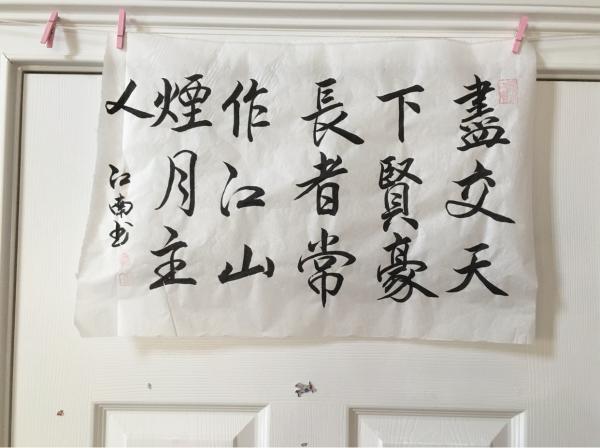 盡交天
下賢豪
長者常
作江山
煙月主
人
江南书